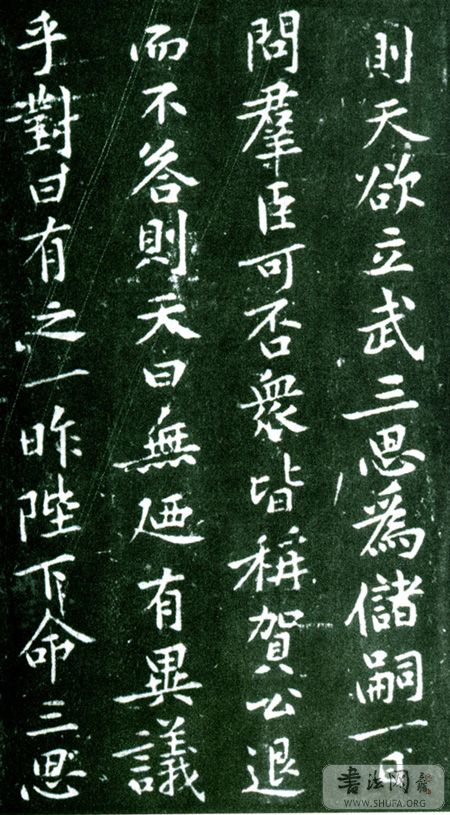 則天欲立武三思為儲嗣一日
問羣臣可否衆皆稱賀公退
而不答則天曰無廼有異議
乎對曰有之一昨陛下命三思
書法网
WWW.SHUFA.ORG